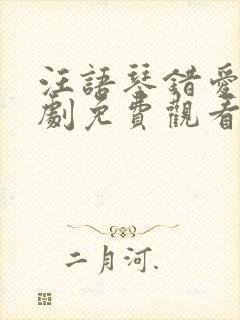 汪語琴錯愛
劇免費觀看
二月河.